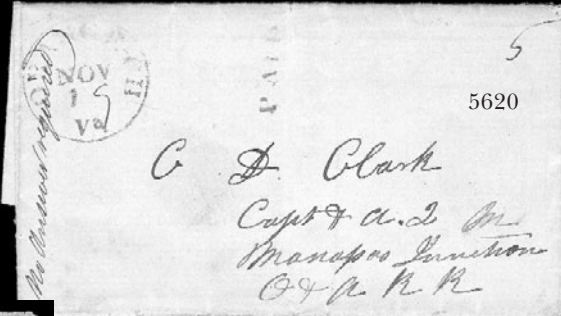 5
NOV
15
Va
PAID
5620
No Answer required
C D Clark
Capt & A. Q M
Manapas Junction
O & A R R